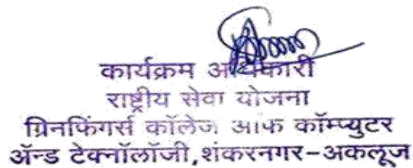 कार्यक्रम अधिकारी
राष्ट्रीय सेवा योजना
ग्रिनफिंगर्स कॉलेज ऑफ कॉम्प्युटर
ॲन्ड टेक्नॉलॉजी,शंकरनगर-अकलूज